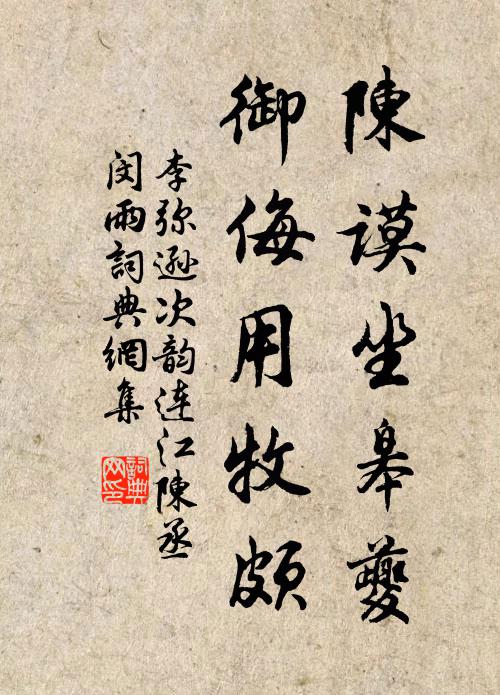 陳謨坐皋夔
御侮用牧頗
李弥遜次韵连江陳丞
閔雨詞典網集
詞典网印